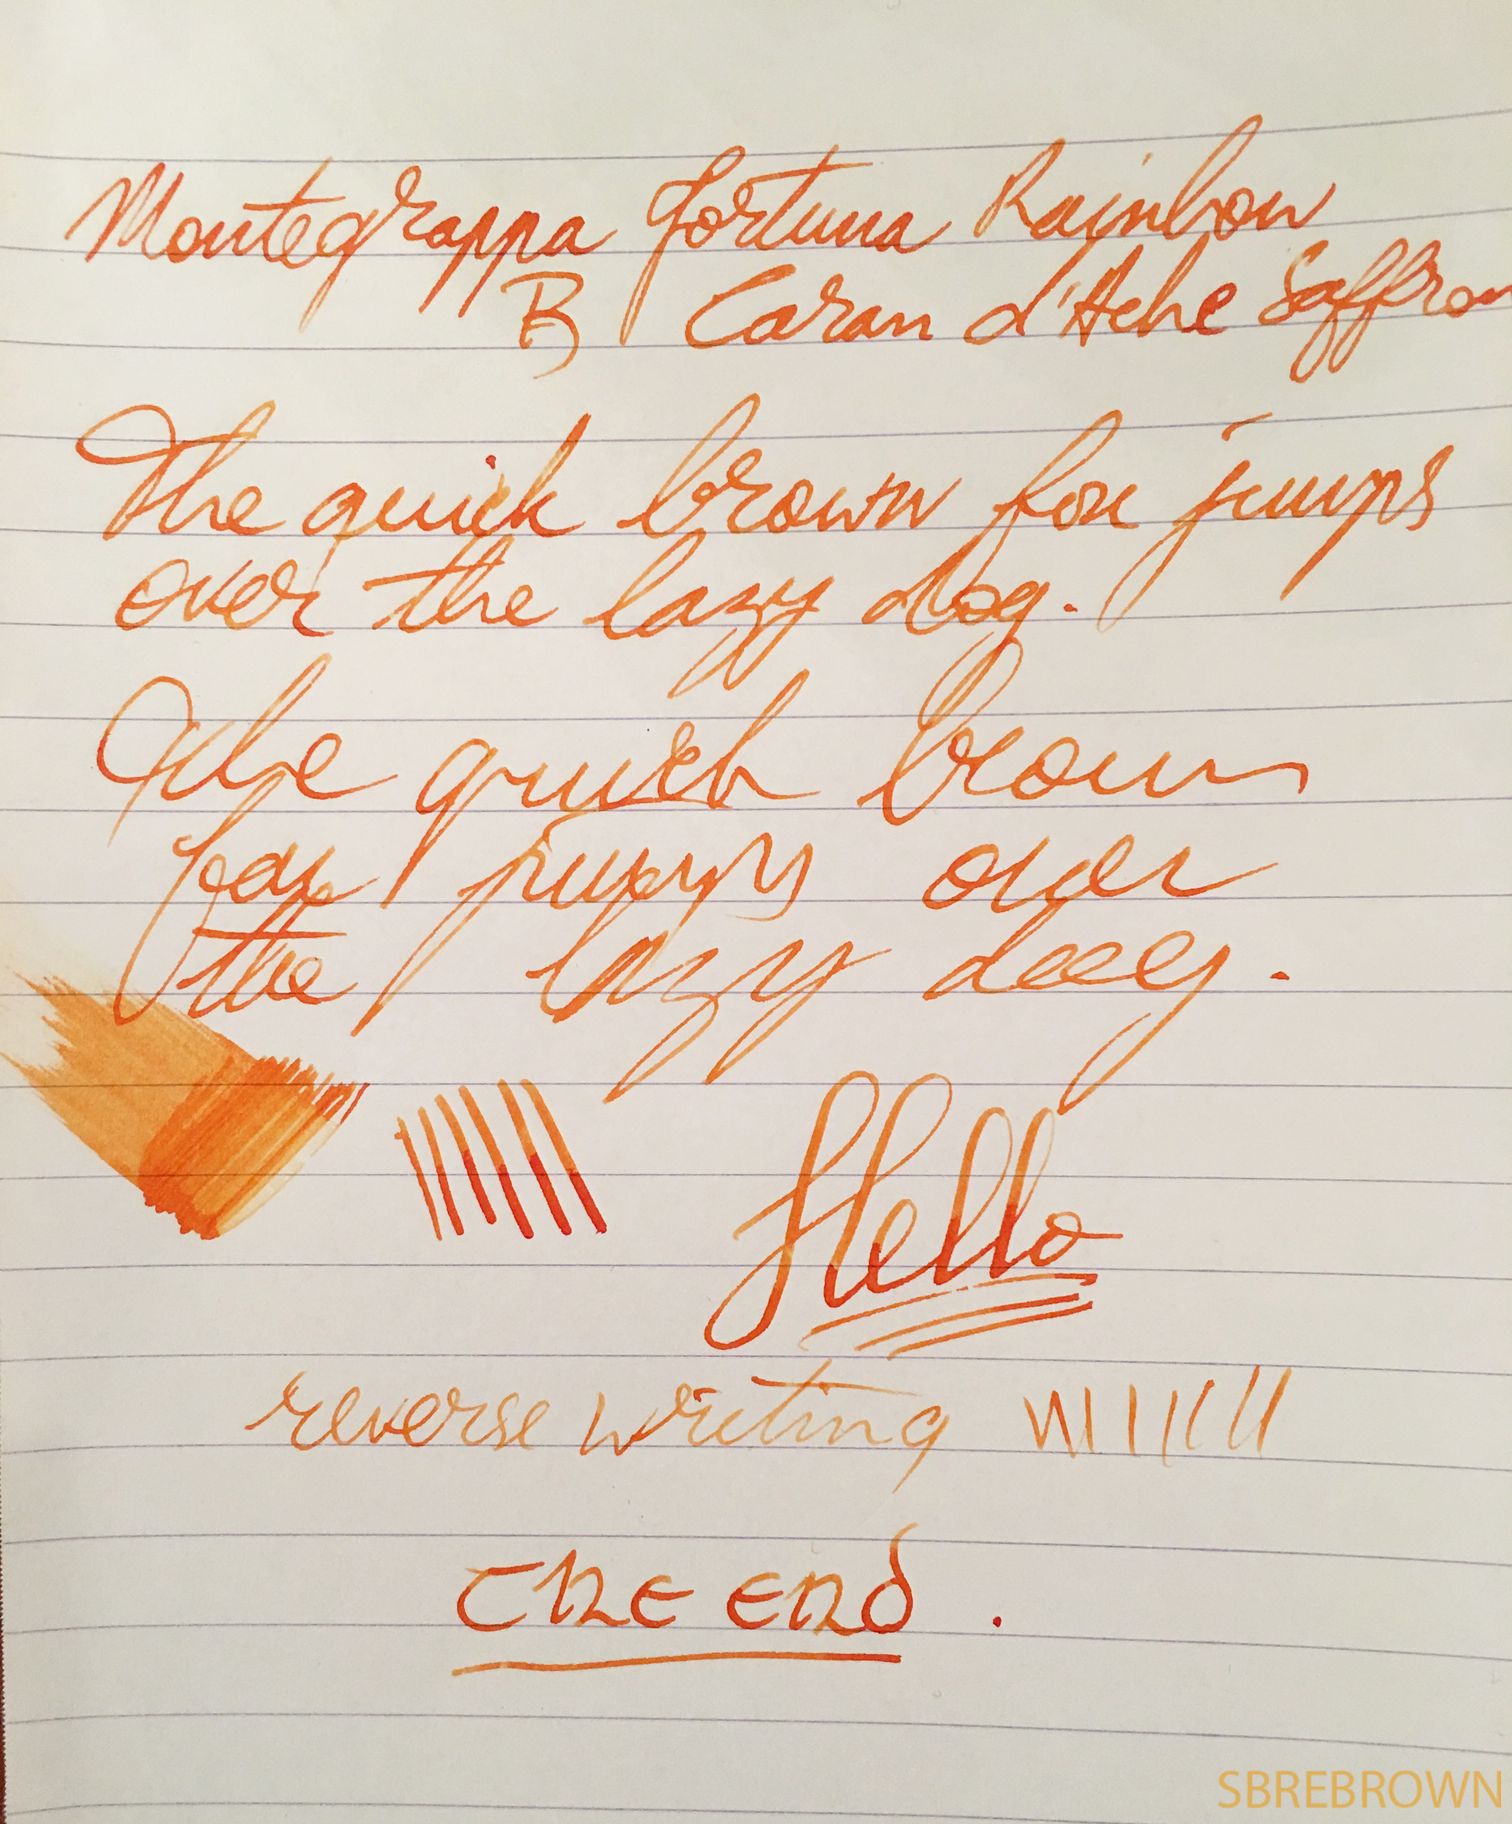 Montegrappa Fortuna Rainbow
B Caran d'Ache Saffron
The quick brown fox jumps
over the lazy dog.
The quick brown
fox jumps over
the lazy dog.
Hello
reverse writing
the end.
SBREBROWN